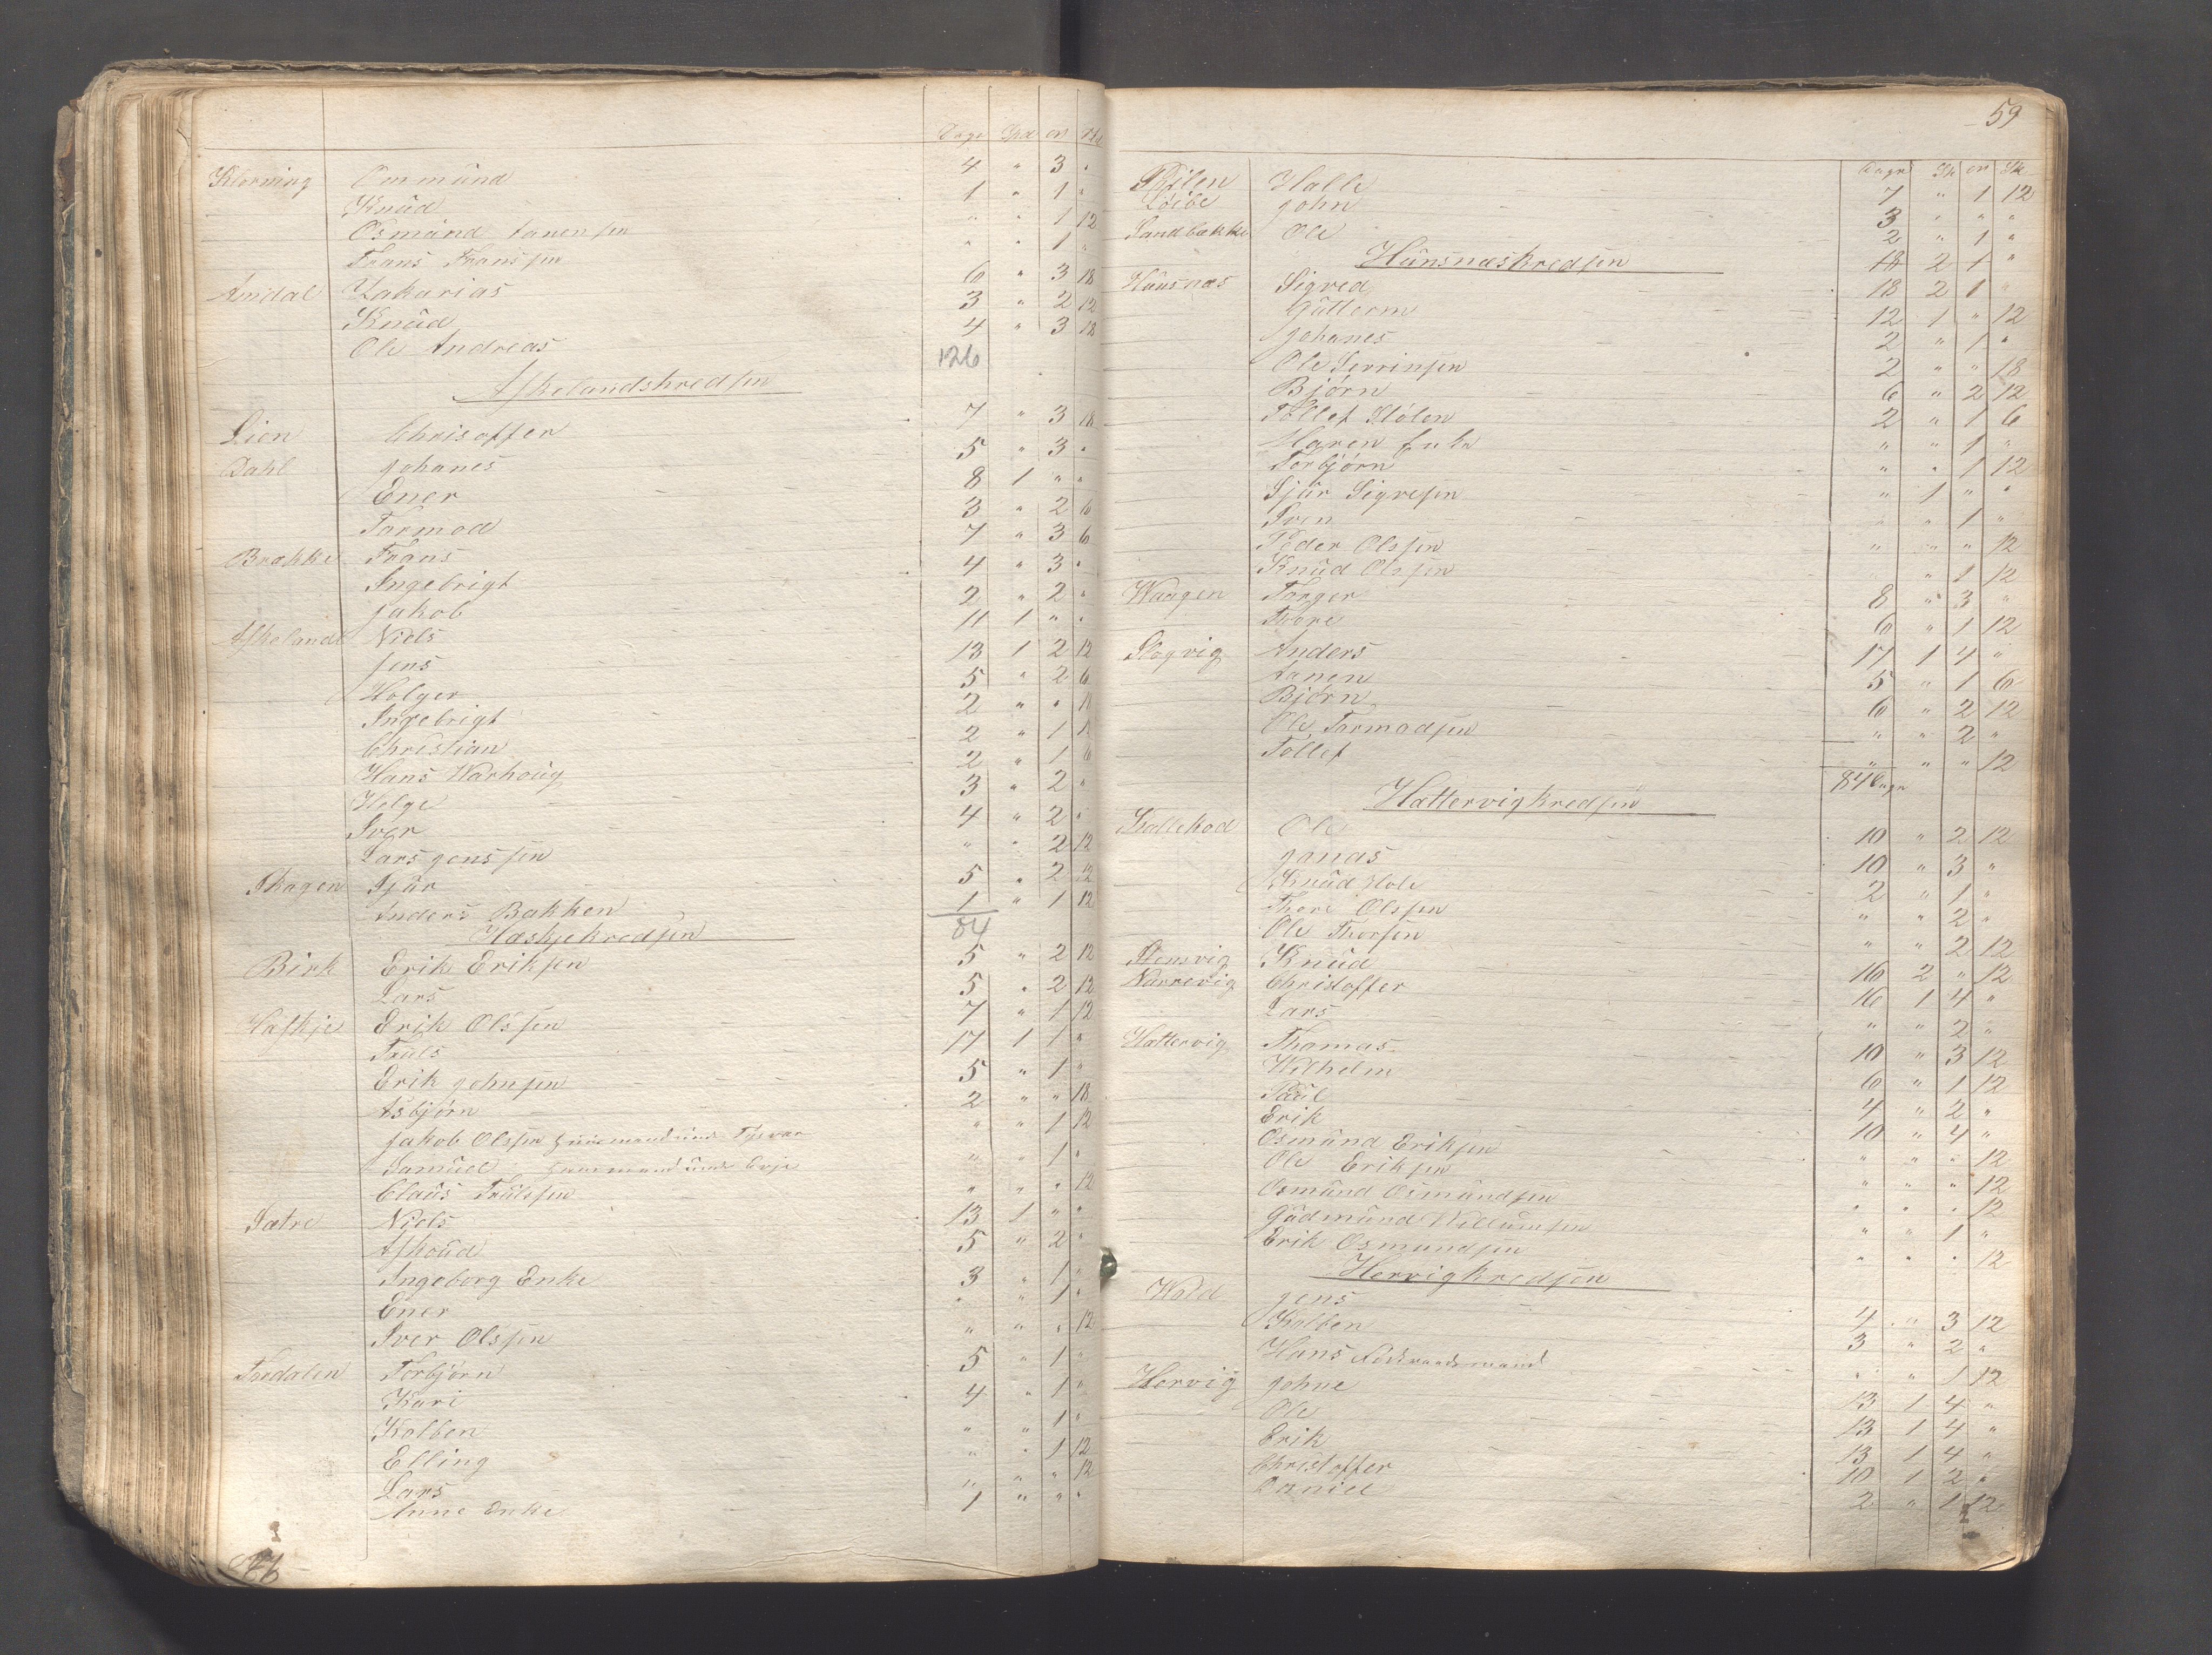 Dage Spd ort
Klovning Ommund 4 " 3 "
Knud 1 " 1 "
Osmund Aanensen " " 1 12
Frans Franssen " " 1 "
Amdal Zakarias 6 " 3 18
Knud 3 " 2 12
Ole Andreas 4 " 3 18
126
Askelandskredsen
Lien Chrisoffer 7 " 3 18
Dahl Johanes 5 " 3 "
Ener 8 1 " "
Tarmod 3 " 2 6
Brække Frans 7 " 3 6
Ingebrigt 4 " 3 "
Jakob 2 " 2 "
Askeland Niels 11 1 " "
Jens 13 1 2 12
Holger 5 " 2 6
Ingebrigt 2 " "
Christian 2 " 1
Hans Warhoug 2 " 1 6
Helge 3 " 2 "
Iver 4 " 2 "
Lars Jenssen " " 2 12
Skagen Sjur 5 " 2 12
Anders Bakken 1 " 1 12
84
Hæskjekredsen
Birk Erik Eriksen 5 " 2 12
Lars 5 " 2 12
Haskje Erik Olssen 7 " 1 12
Truls 17 1 1 "
Erik Johnsen 5 " 1 "
Asbjørn 2 " " 18
Jakob Olssen Huusmand und Tysvær " " 1 12
Samuel Huusmand und Evje " " 1 "
Claus Trulssen " " " 12
Sætre Niels 13 1 " "
Askoud 5 " 2 "
Ingeborg Enke 3 " 1 "
Ener " " 1 "
Iver Olssen " " " 12
Fredalen Torbjørn 5 " 1 "
Kari 4 " 1 "
Kolben " " 1 "
Elling " " 1 12
Lars " " " 12
Anne Enke 1 " " "
59
Dage Sp ort Sk
Halle 7 " 1 12
John 3 " " "
Sandbække Ole 2 " 1 "
Hunsnæskredsen 18 2 1 "
Hunsnæs Sigved 18 2 1 "
Guttorm 12 1 " 12
Johanes 2 " 1 "
Ole Serrinsen 2 " " 18
Bjørn 6 " 2 12
Tollef Stølen 2 " 1 6
Maren Enke " " 1 "
Torbjørn " " 1 12
Sjur Sigvesen " 1 " "
Sven " " 1 "
Peder Olssen " " " 12
Knud Olssen " 1 12
Waagen Torger 8 " 3 "
Tore 6 " 1 12
Slogvig Anders 17 1 4 "
Aanen 5 " 1 6
Bjørn 6 " 2 12
Ole Tarmodsen " " 2 "
Tollef " " " 12
84 Dage
Hattervigkredsen
Kallekod Ole 10 " 2 12
Jonas 10 " 3 "
Knud Hole 2 " 1 "
Thore Olssen " " 2 "
Ole Thorsen " " 2 12
Stensvig Knud 16 2 " 12
Narrevig Christoffer 16 1 4 "
Lars " " 2 "
Hattervig Thomas 10 " 3 12
Wilhelm 6 " 1 12
Paul 4 " 2 "
Erik 10 " 4 "
Osmund Eriksen " " " 12
Ole Eriksen " " " 12
Osmund Osmundsen " " " 12
Gudmund Willumsen " " 1 "
Erik Osmundsen " " " 12
Hervigkredsen
Wold Jens 4 " 3 12
Kolben 3 " 2 "
Hans " " 1 12
Hervig Johne 13 1 4 "
Ole 13 1 4 "
Erik 13 1 4 "
Christoffer 10 1 2 "
Daniel 2 " 1 12